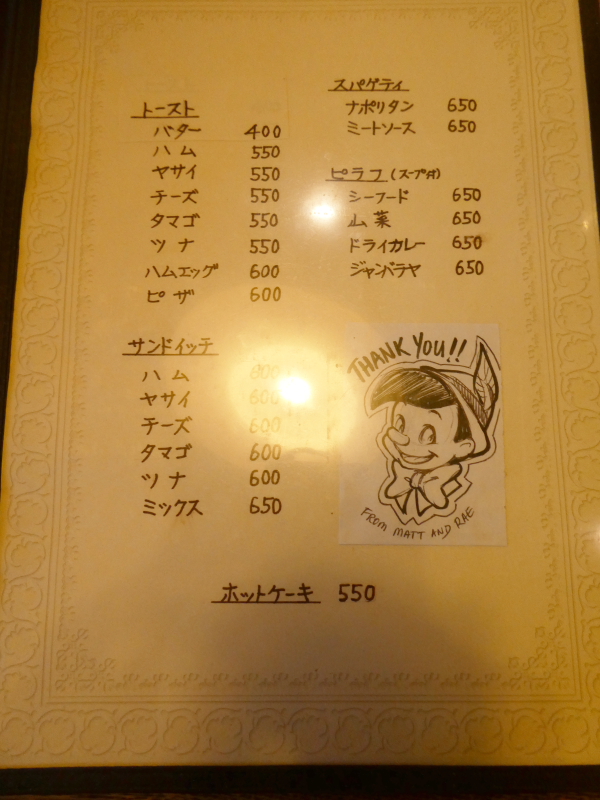 トースト
バター 400
ハム 550
ヤサイ 550
チーズ 550
タマゴ 550
ツナ 550
ハムエッグ 600
ピザ 600
サンドイッチ
ハム 600
ヤサイ 600
チーズ 600
タマゴ 600
ツナ 600
ミックス 650
スパゲティ
ナポリタン 650
ミートソース 650
ピラフ(スープ付)
シーフード 650
山菜 650
ドライカレー 650
ジャンバラヤ 650
THANK YOU!!
FROM MATT AND RAE
ホットケーキ 550